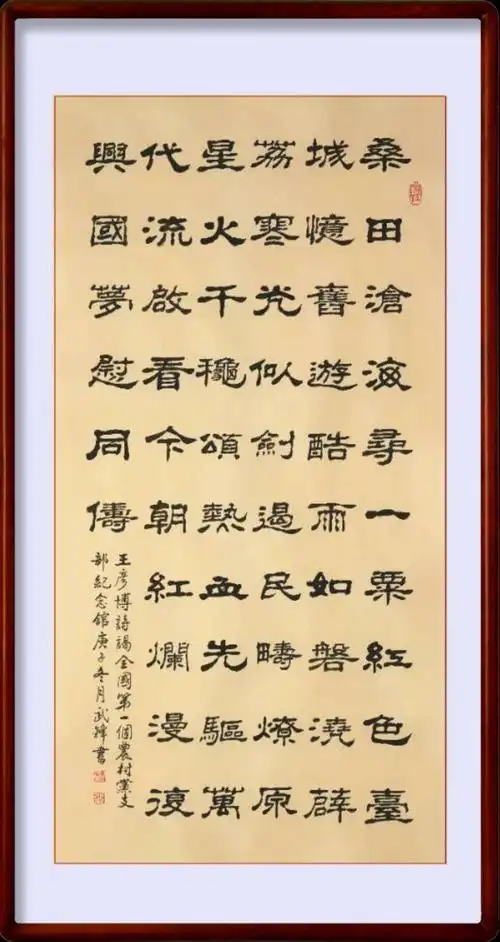 桑田滄海尋一粟紅色臺
城憶舊遊酷雨如磐澆薜
荔寒光似劍遏民疇燎原
星火千龝頌熱血先驅萬
代流啟看今朝紅爛漫復
興國夢慰同儔
王彦博詩謁全國第一個農村黨支
部紀念館庚子冬月武書